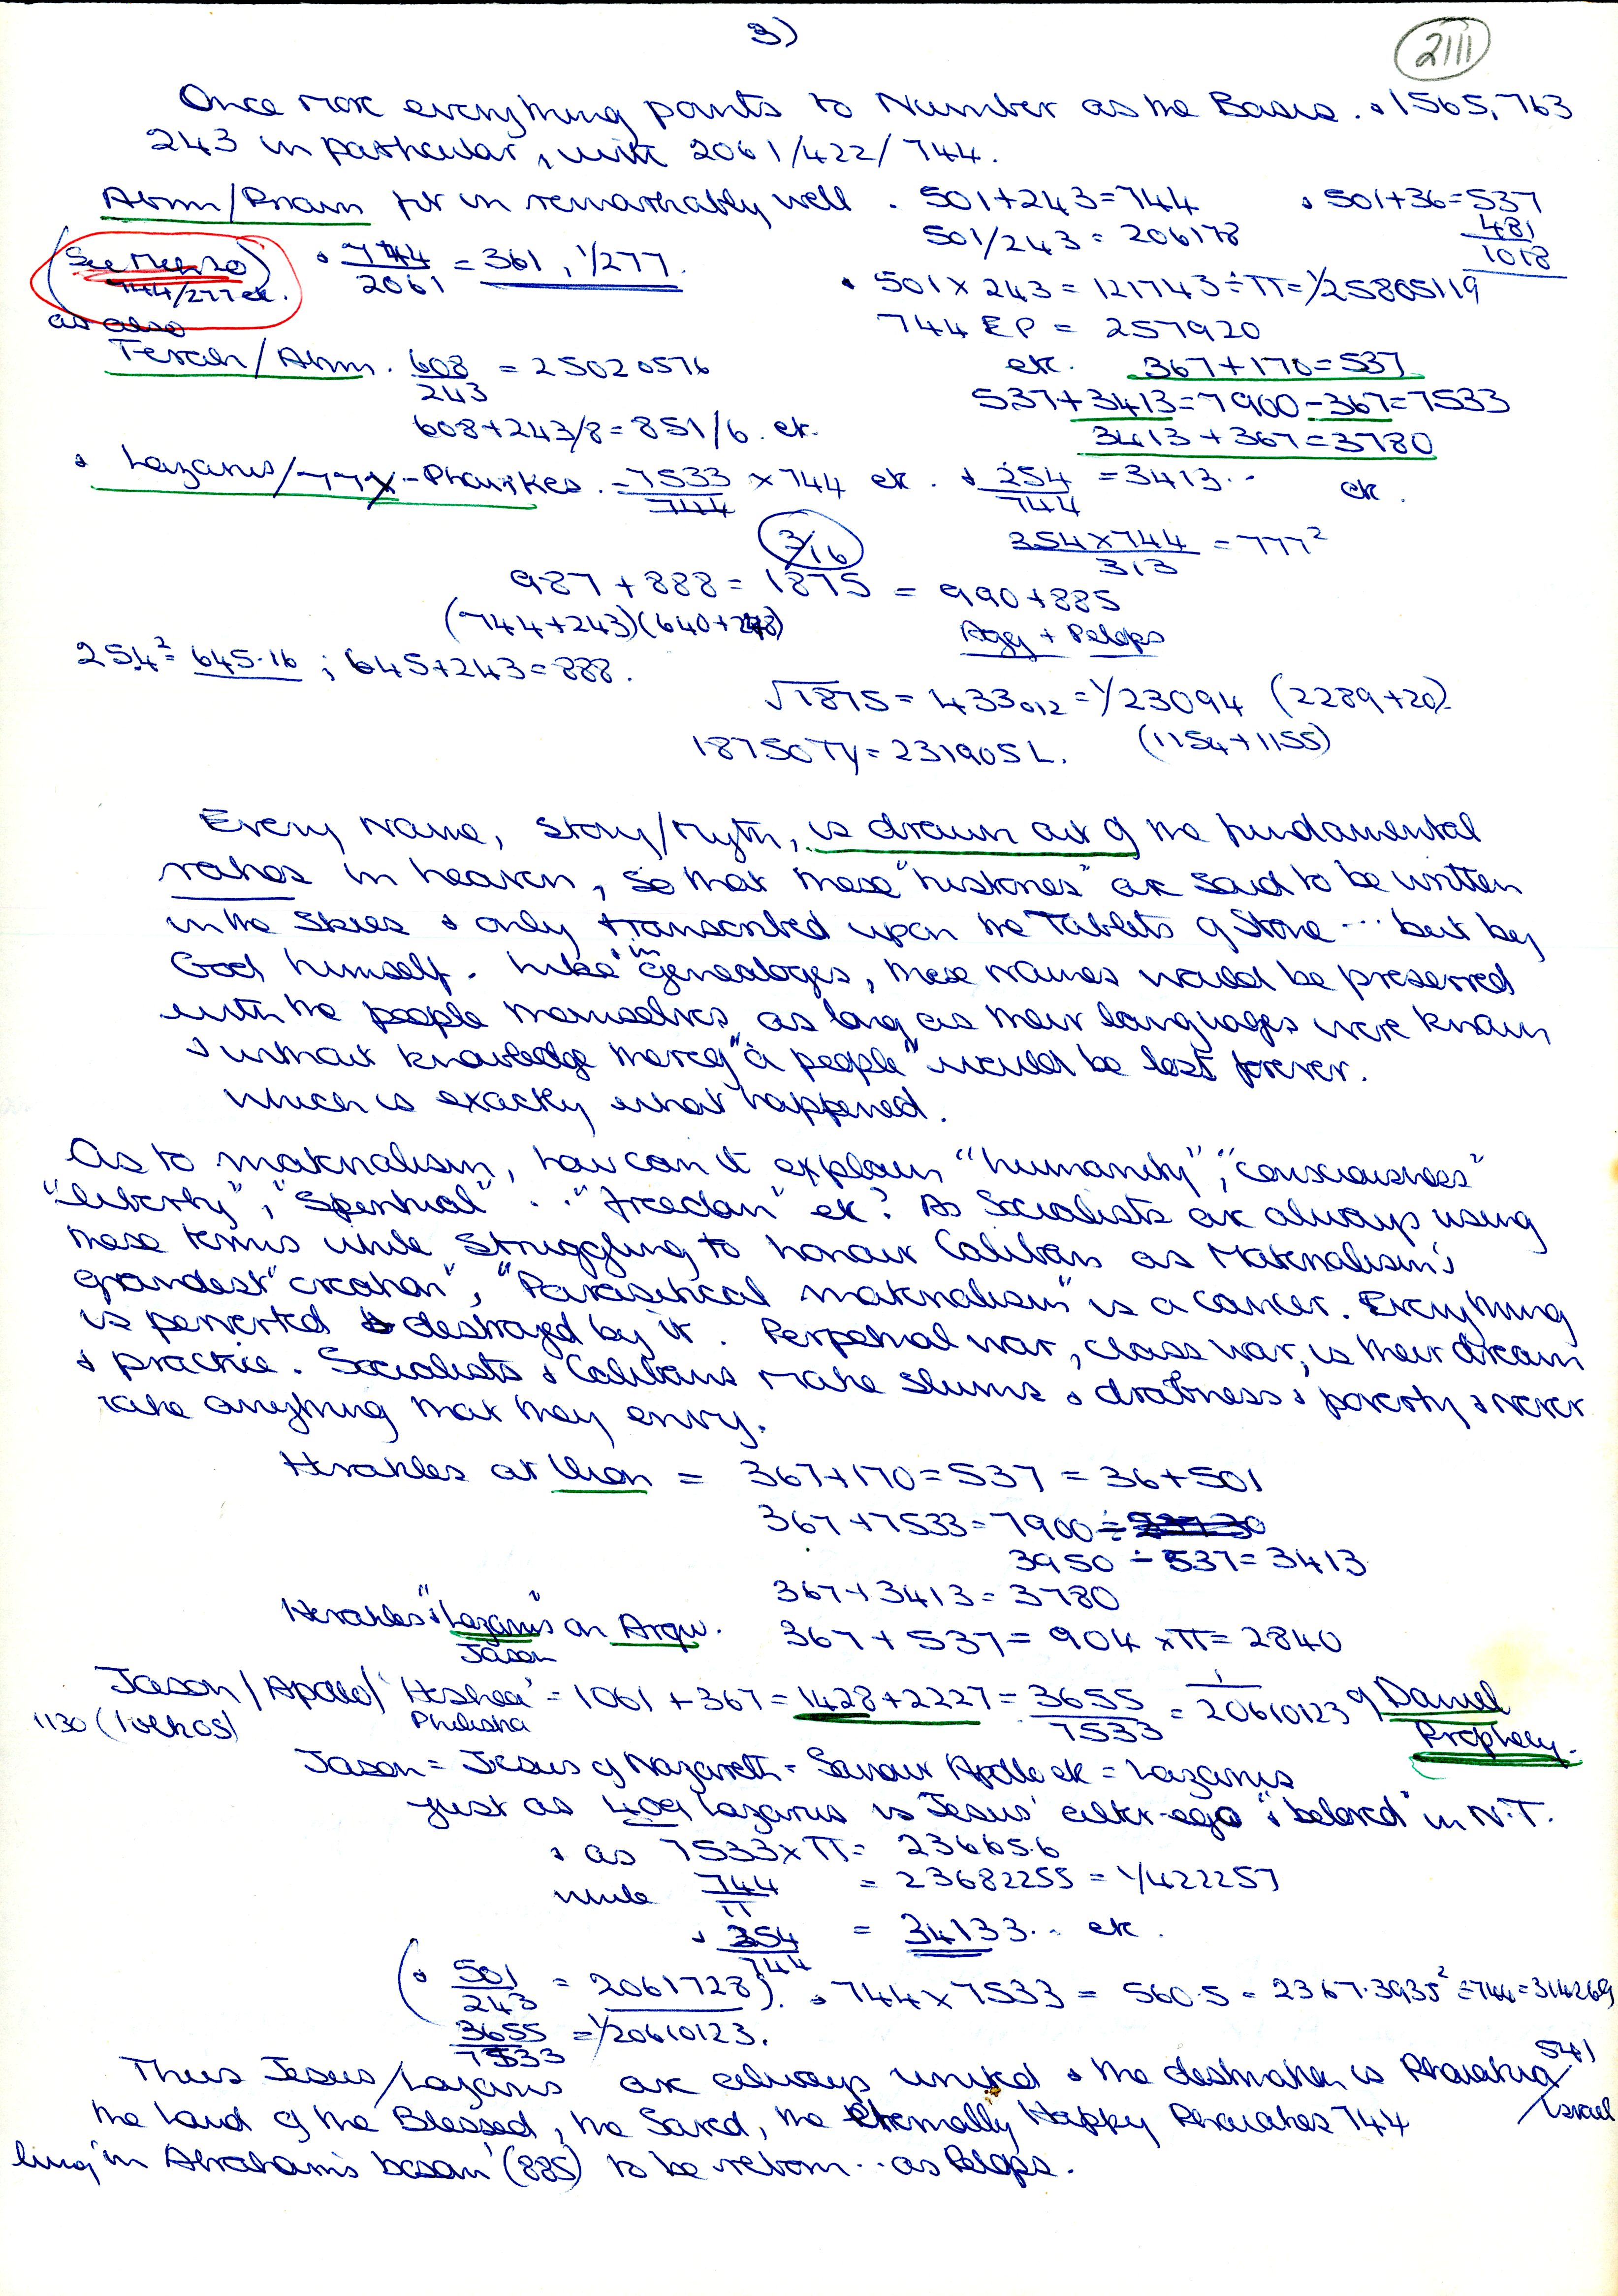 3)
2111
Once more everything points to Number as the Basis. & 1565, 763
243 in particular, with 2061/422/744.
Abrm/Priam fit in remarkably well . 501+243=744 & 501+36=537
501/243 = 206178 481
1018
(See Menzo)
744/277 etc.
& 744/2061 = 361, 1/277.
& 501 x 243 = 121743 ÷ π = 1/25805119
as also
744 EP = 257920
Terah/Abrm. 608/243 = 25020576 etc. 367+170=537
537+3413=7900-367=7533
608+243/8=851/6. etc.
3413+367=3780
& Lazarus/777-Phaiakes. = 7533/744 x 744 etc. & 254/744 = 3413.. etc.
354x744/313 = 777²
3/16
987+888= 1875 = 990+885
(744+243)(640+248) Agg + Pelops
25.4²= 645.16 ; 645+243=888.
√1875 = 433012 = 1/23094 (2289+20)
18750Ty = 231905L. (1154+1155)
Every Name, Story/Myth, is drawn out of the fundamental
ratios in heaven, so that these "histories" are said to be written
in the Skies & only transcribed upon the Tablets of Stone ... but by
God himself. Like in Genealogies, these names would be preserved
with the people themselves as long as their languages were known
& without knowledge thereof "a people" would be lost forever.
Which is exactly what happened.
As to materialism, how can it explain "humanity", "consciousness"
"liberty", "Spiritual" .. "freedom" etc? As Socialists are always using
these terms while Struggling to honour Caliban as Materialism's
grandest "creation", "Parasitical materialism" is a cancer. Everything
is perverted & destroyed by it. Perpetual war, class war, is their dream
& practice. Socialists & Calibans make slums & drabness & poverty & never
make anything that they envy.
Herakles at Ilion = 367+170=537 = 36+501
367+7533=7900 ÷
3950 - 537= 3413
367+3413=3780
Herakles "& Lazarus" on Argo. 367+537= 904 xπ= 2840
Jason
Jason/Apollo/'Hoshea' = 1061+367=1428+2227= 3655/7533 = 1/20610123 of Daniel
1130 (Iolkos) Prophecy.
Jason = Jesus of Nazareth = Saviour Apollo etc = Lazarus
just as 409 Lazarus is 'Jesus' alter-ego "& beloved" in N.T.
& as 7533xπ= 23665.6
while 744/π = 23682255 = 1/422257
& 254/744 = 34133.. etc.
(& 501/243 = 2061728). & 744x7533 = 560.5 = 2367.3935² ÷744=314269
3655/7533 = 1/20610123.
Thus Jesus/Lazarus are always united & the destination is Phaiakia/ 541
/Israel
the Land of the Blessed, the Saved, the Eternally Happy Phaiakes 744
living 'in Abraham's bosom' (885) to be reborn .. as Pelops.